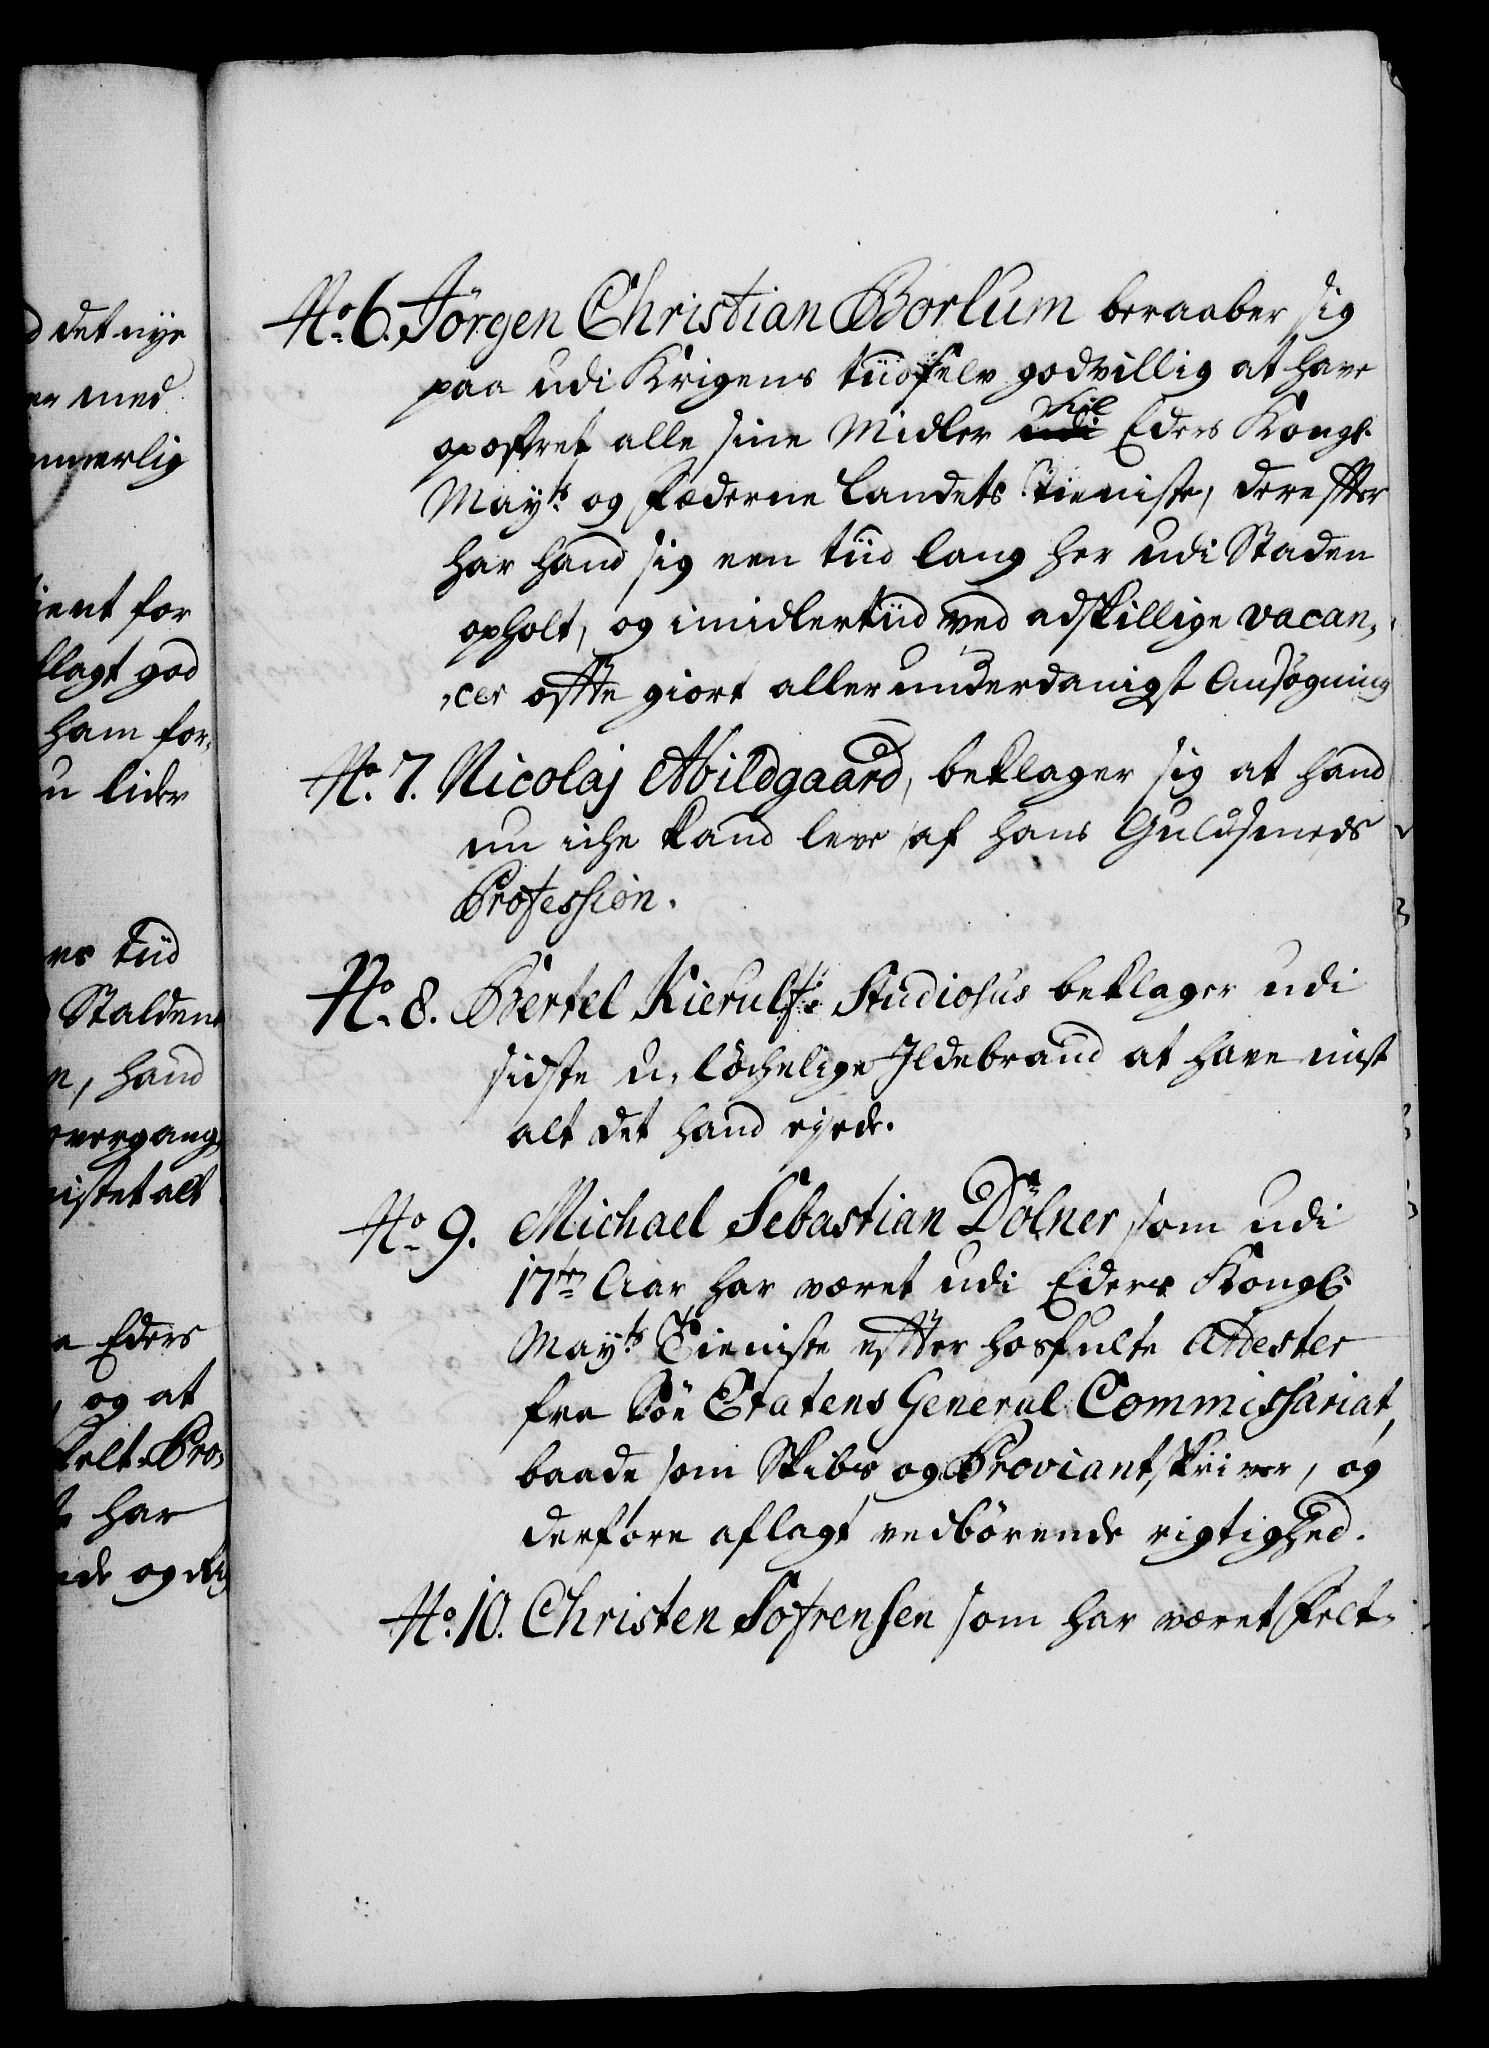 d det nye
er med
mmerlig
tient for
flagt god
ham for,
u lider
res tiid
Stalden
n, hand
overgang,
mistet alt
a Eders
, og at
felt Pro,
har
ide og
No 6. Jörgen Christian Borlum beraaber sig
paa udi Krigens tiid selv godvillig at have
opofret alle sine Midler udi til Eders Kongl.
Mayts og Fæderne Landets Tieniste, derefter
har hand sig een tiid lang her udi Staden
opholt, og imidlertiid ved adskillige vacan,
,cer offte giort allerunderdanigst Ansögning
No. 7. Nicolaj Abildgaard, beklager sig at hand
nu iche kand leve af hans Guldsmeds
Profession.
No. 8. Bertel Kierulf: Studiosus beklager udi
sidste u, löchelige Ildebrand at have mist
alt det hand ejede.
No 9. Michael Sebastian Dölner som udi
17ten Aar har været udi Eders Kongl:
Mayts Tieniste effter hosfulte Attester
fra Söe Etatens General Commissariat,
baade som Skibs og Proviantskriver, og
derfore aflagt vedbörende rigtighed.
No: 10. Christen Sofrensen som har været Felt-